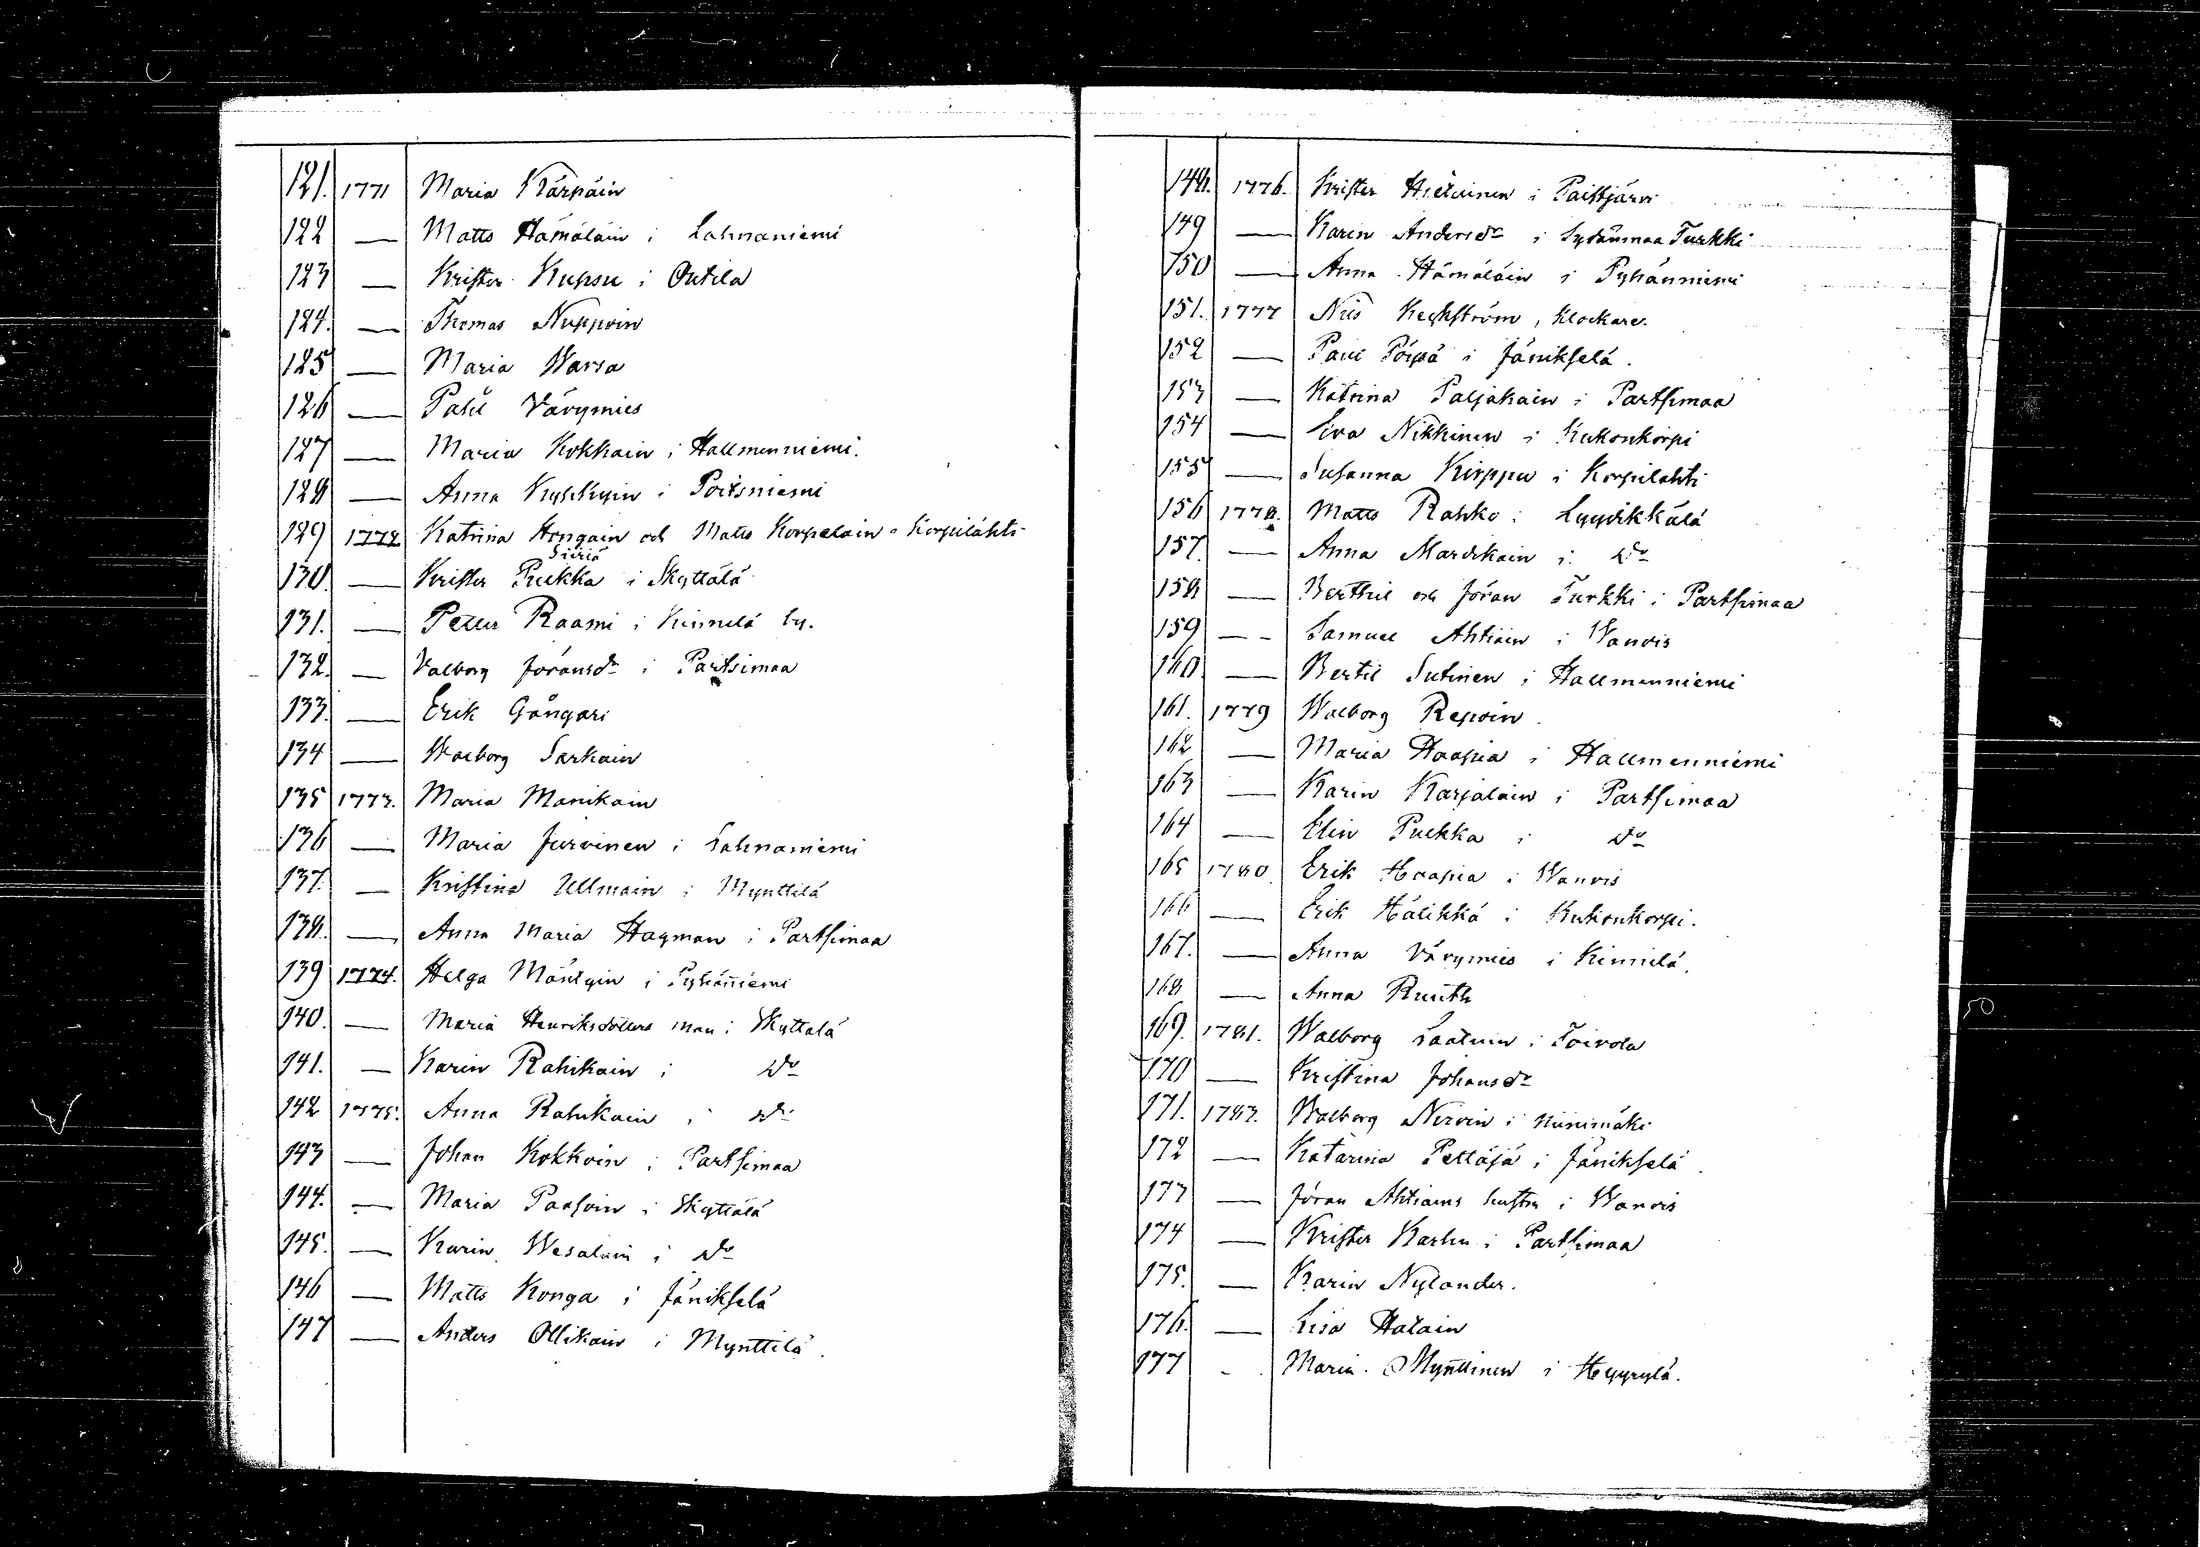 121. 1771 Maria Kärpäin
122 — Matts Hämäläin i Lahnaniemi
123 — Krister Kupsu i Outila
124. — Thomas Nuppoin
125 — Maria Warsa
126 — Påhl Värymies
127 — Maria Kokkain i Hallmenniemi.
128 — Anna Kyhkyin i Poitsniemi
129 1772 Katrina Hongain och Matts Korpelain i Korpilahti
Siiriä
130. — Krister Pukka i Skyttälä
131. — Petter Raami i Kinnilä by.
132. — Valborg Jöransdr i Partsimaa
133. — Erik Gångari
134 — Walborg Sarkain
135 1773. Maria Manikain
136 — Maria Jurvinen i Lahnaniemi
137. — Kristina Ullmain i Mynttilä
138. — Anna Maria Hagman i Partsimaa
139 1774. Helga Mäntyin i Pyhänniemi
140. — Maria Henriksdotters man i Skyttälä
141. — Karin Rahikain i do
142 1775. Anna Rahikain i do
143 — Johan Kokkoin i Partsimaa
144. — Maria Paasoin i Skyttälä
145. — Karin Wesalain i do
146 — Matts Konga i Jänikselä
147 — Anders Ollikain i Mynttilä.
148. 1776. Krister Hietainen i Paistjärvi
149 — Karin Andersdr i Sydänmaa Turkki
150 — Anna Hämäläin i Pyhänniemi
151. 1777 Nils Heckström, Klockare.
152 — Paul Pörsä i Jänikselä.
153 — Katrina Paljakain i Partsimaa
154 — Eva Nikkinen i Kukonkorpi
155 — Susanna Kirppu i Korpilahti
156 1778. Matts Rahko i Lyydikkälä
157. — Anna Mardikain i do
158 — Berthil och Jöran Turkki i Partsimaa
159 — Samuel Ahtiain i Wanois
160 — Bertil Sutinen i Hallmenniemi
161. 1779 Walborg Repoin.
162 — Maria Haapia i Hallmenniemi
163 — Karin Karjalain i Partsimaa
164 — Elin Pukka i do
165 1780. Erik Haapia i Wanois
166 — Erik Hälikkä i Kukonkorpi.
167. — Anna Värymies i Kinnilä.
168 — Anna Ruuth
169. 1781. Walborg Laatuin i Toivola
170 — Kristina Johansdr
171. 1783. Walborg Nirvin i Niinimäki
172 — Katarina Pettäjä i Jänikselä.
173 — Jöran Ahtiains hustru i Wanois
174 — Krister Karhu i Partsimaa
175. — Karin Nylander.
176. — Lisa Halain
177 - Maria Mynttinen i Hyyrylä.
50